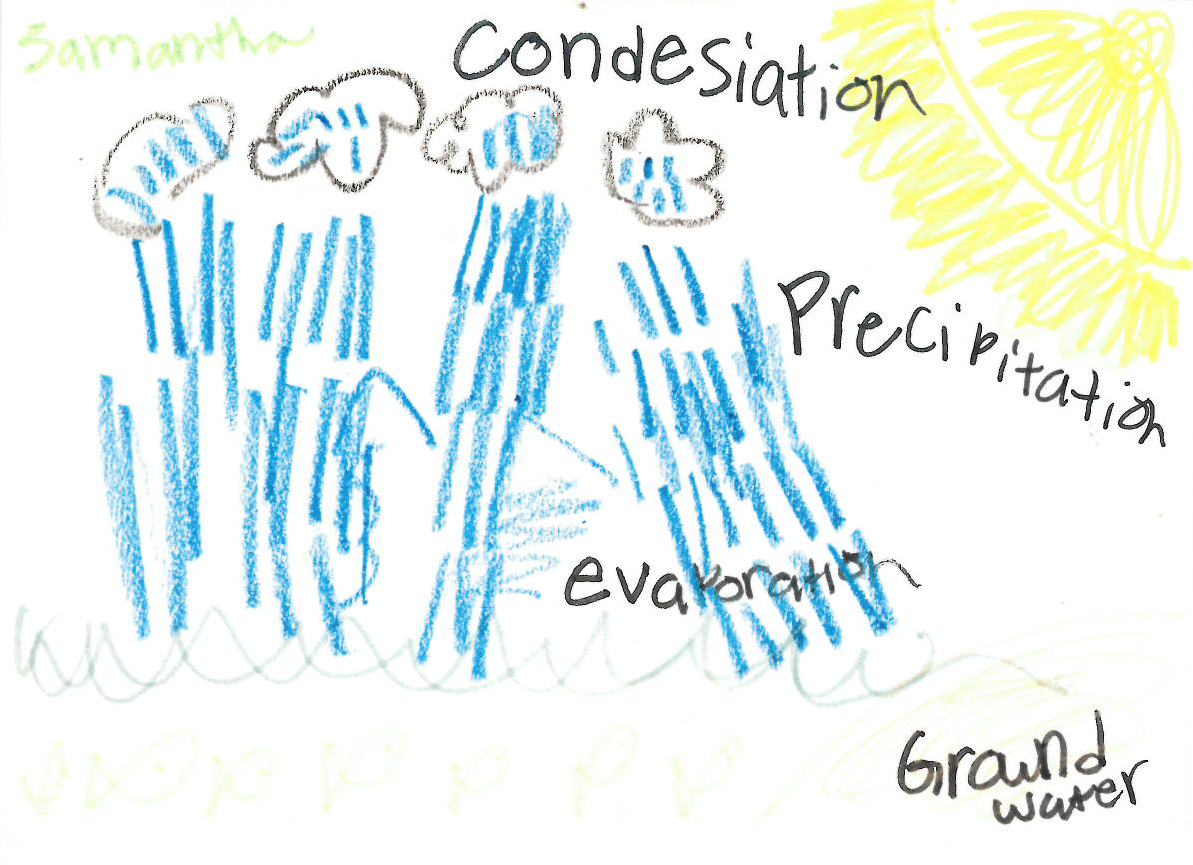 Samantha
Condesiation
Precipitation
evaporation
Ground
water